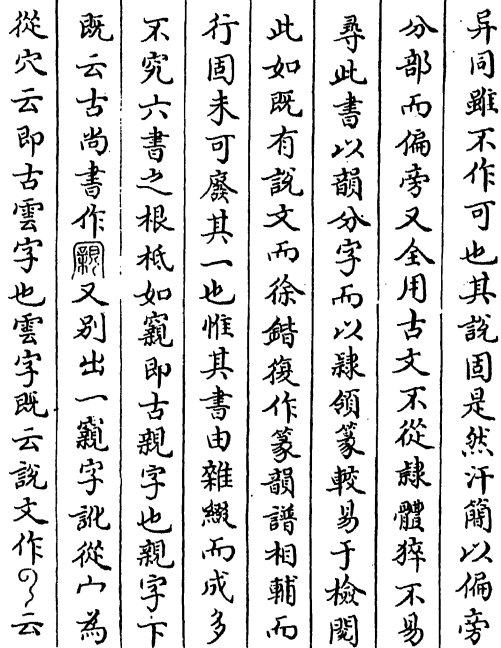 异同雖不作可也其說固是然汗簡以偏旁
分部而偏旁又全用古文不從隷體猝不易
尋此書以韻分字而以隷領篆較易于檢閱
此如既有說文而徐鍇復作篆韻譜相輔而
行固未可廢其一也惟其書由雜綴而成多
不究六書之根柢如窺即古親字也親字下
既云古尚書作又別出一窺字訛從宀為
從穴云即古雲字也雲字既云說文作云